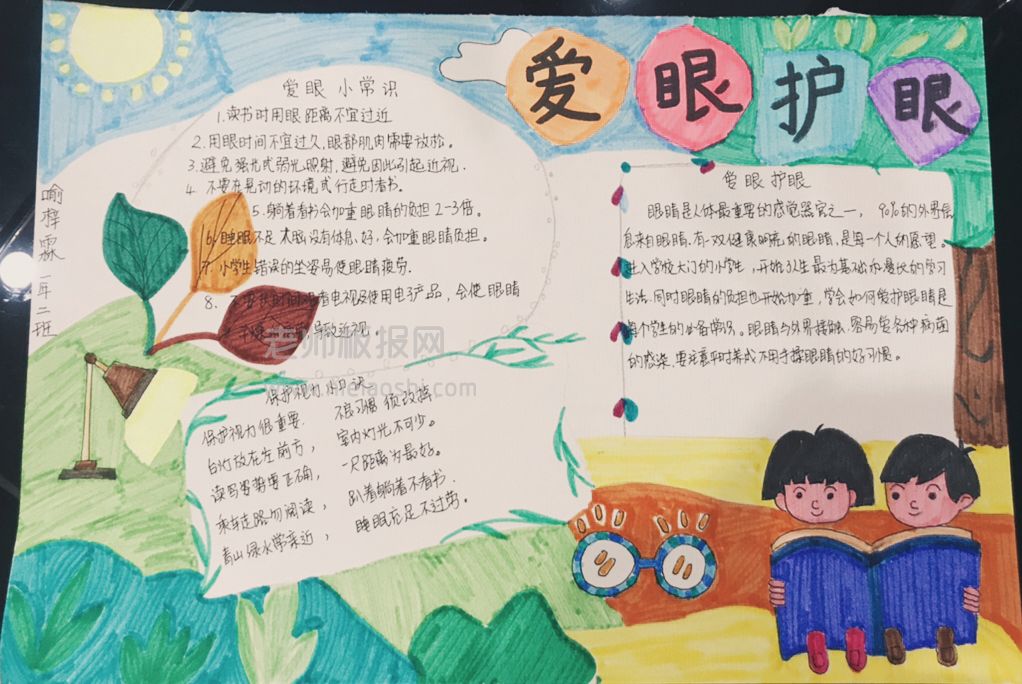 爱眼护眼
爱眼小常识
1.读书时用眼距离不宜过近
2.用眼时间不宜过久,眼部肌肉需要放松。
3.避免强光或弱光照射,避免因此引起近视.
4.不要在晃动的环境或行走时看书.
5.躺着看书会加重眼睛的负担2-3倍。
6.睡眠不足大脑没有休息好,会加重眼睛负担。
7.小学生错误的坐姿易使眼睛疲劳.
8.看电视及使用电子产品,会使眼睛
导致近视,
喻梓霖 一年二班
爱眼护眼
眼睛是人体最重要的感觉器官之一,90%的外界信
息来自眼睛.有一双健康明亮的眼睛,是每一个人的愿望。
进入学校大门的小学生,开始了人生最为基础和漫长的学习
生活.同时眼睛的负担也开始加重,学会如何爱护眼睛是
每个学生的必备常识。眼睛与外界接触,容易受各种病菌
的感染.要注意平时养成不用手揉眼睛的好习惯。
保护视力小口诀
保护视力很重要. 不良习惯须改掉
台灯放在左前方, 室内灯光不可少。
读写姿势要正确, 一尺距离为最好。
乘车走路勿阅读, 趴着躺着不看书.
青山绿水常亲近, 睡眠充足不过劳。
老师板报网
www.mielaoshi.com